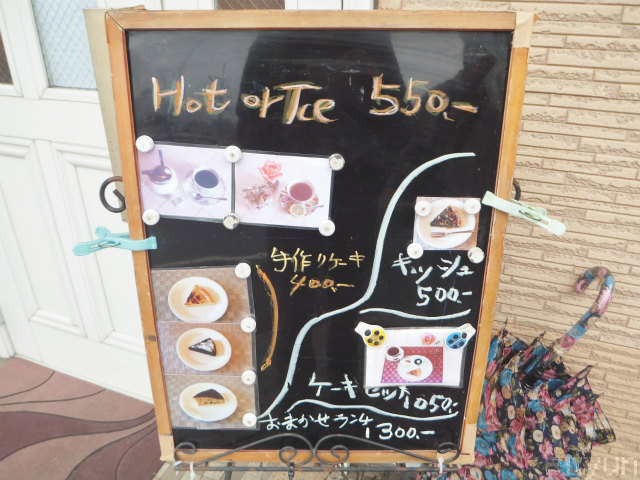 Hot or Ice 550.-
手作りケーキ
400.-
キッシュ
500.-
ケーキセット 1050.-
おまかせランチ
1300.-